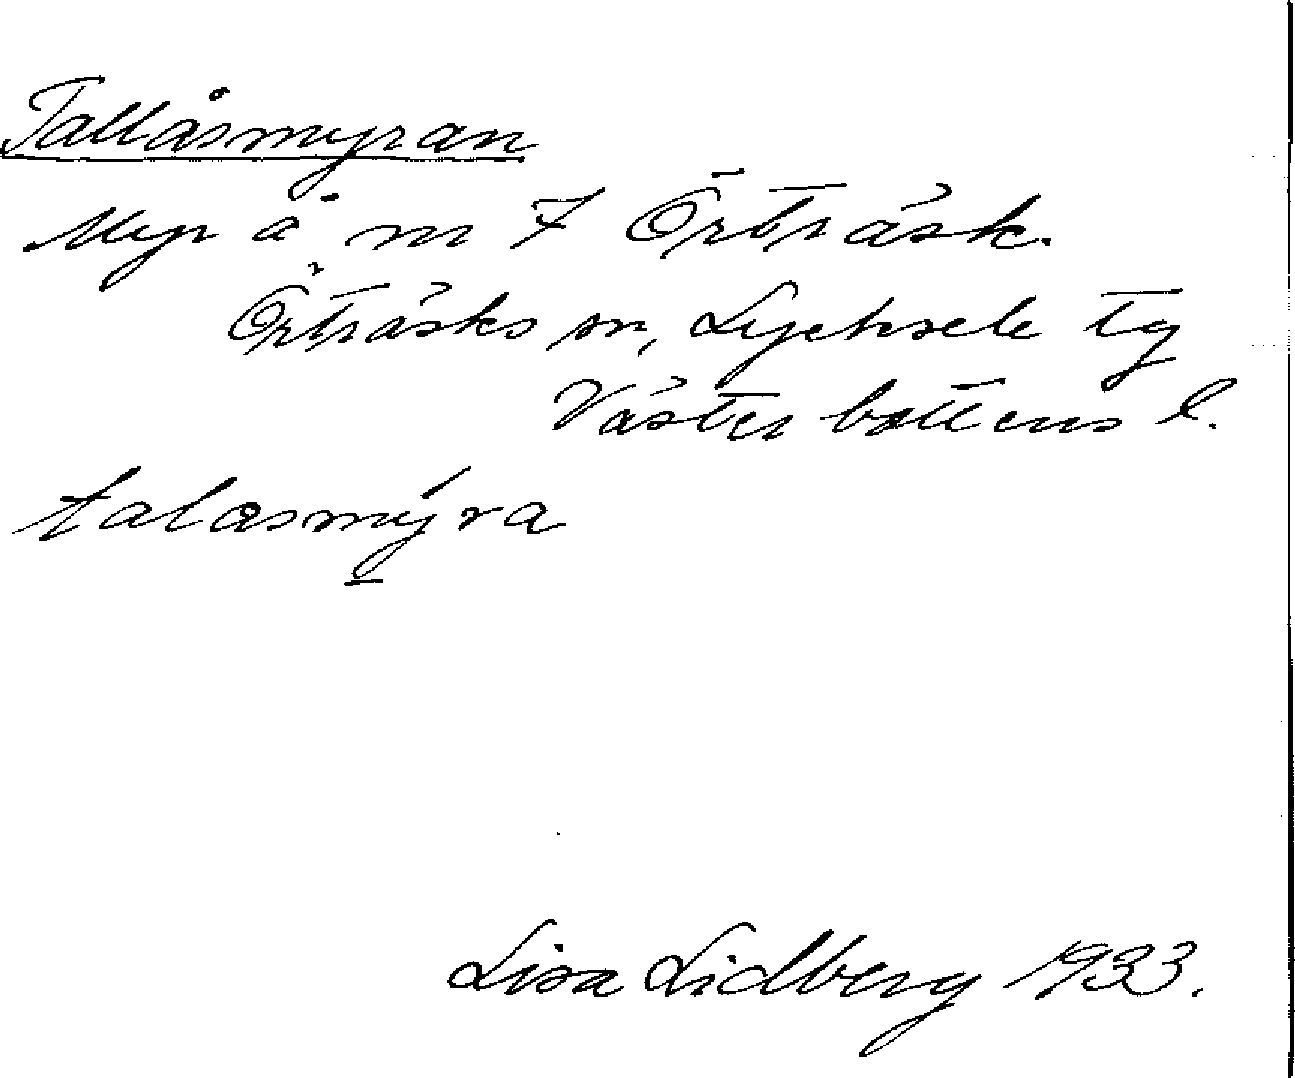 Tallåsmyran
Myr å nr 7 Örträsk.
Örträsks sn, Lycksele tg
Västerbottens l.
talasmýra
Lisa Lidberg 1933.